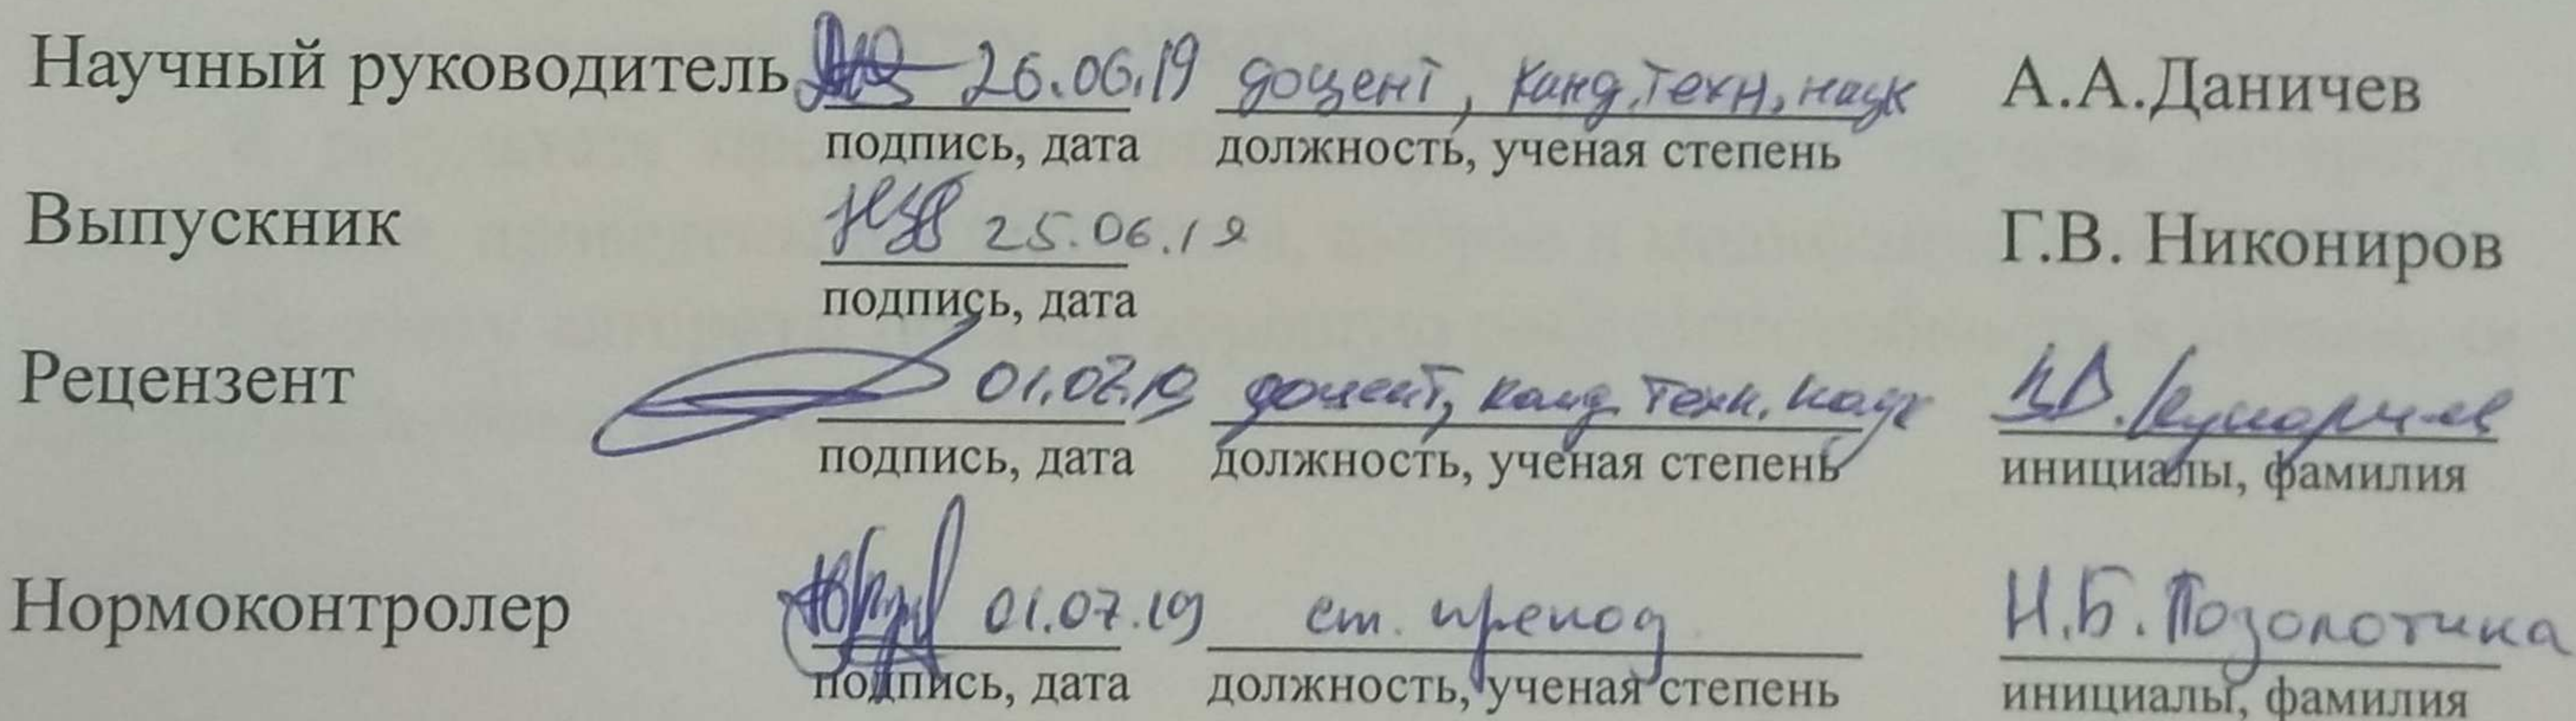 Научный руководитель 26.06.19 доцент, канд. техн. наук А.А.Даничев
подпись, дата должность, ученая степень
Выпускник 25.06.19 Г.В. Никониров
подпись, дата
Рецензент 01.07.19 доцент, канд. техн. наук
подпись, дата должность, ученая степень инициалы, фамилия
Нормоконтролер 01.07.19 ст. препод Н.Б. Позолотина
подпись, дата должность, ученая степень инициалы, фамилия